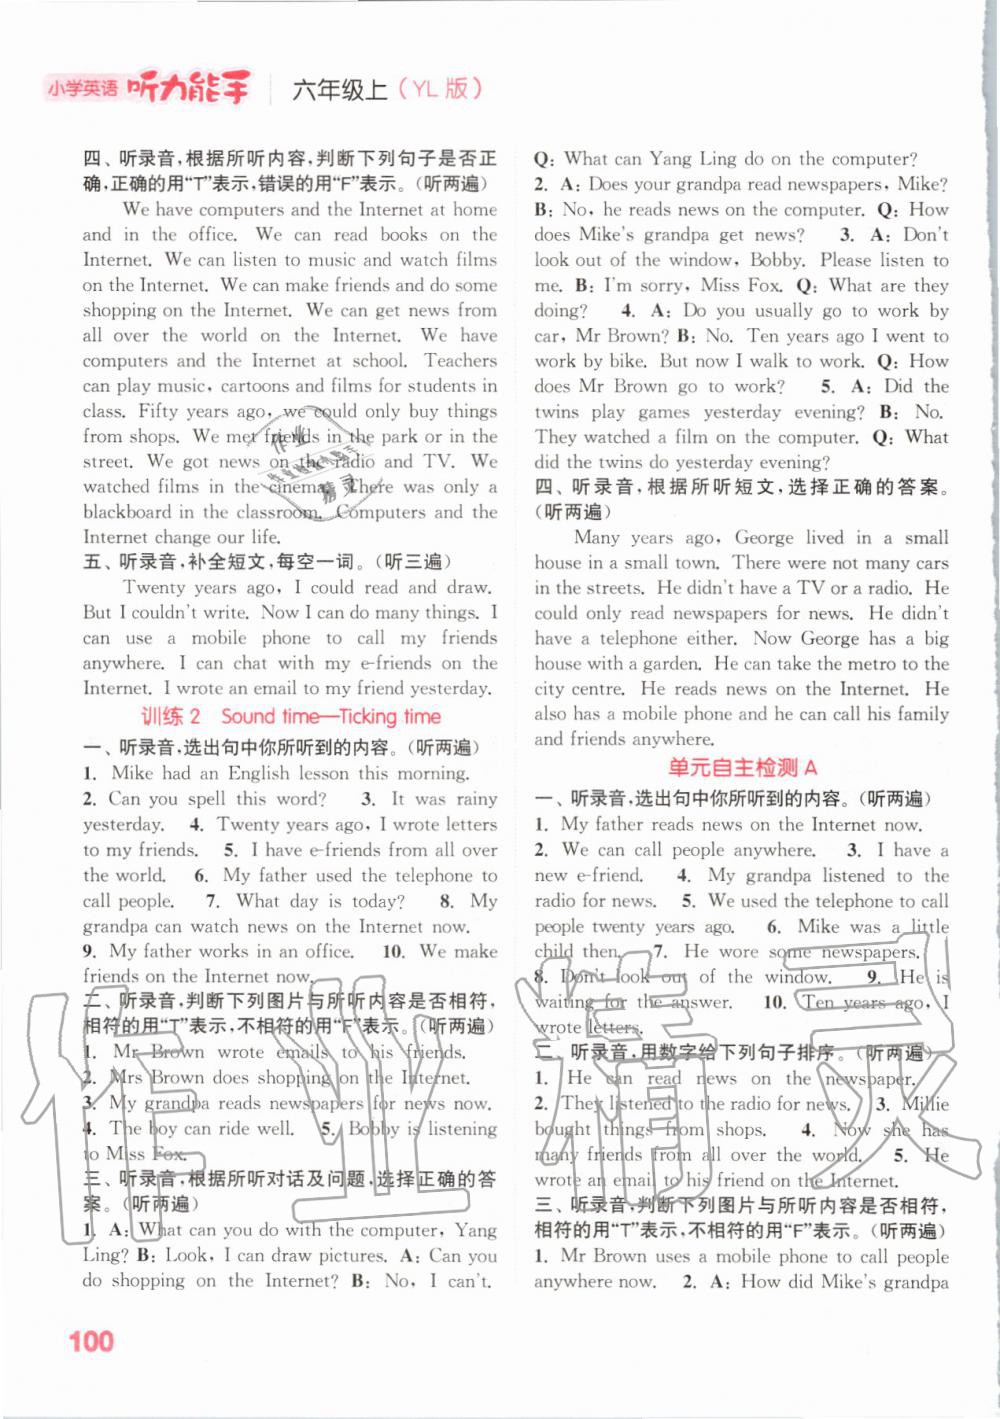 小学英语 听力能手 六年级上（YL版）
四、听录音,根据所听内容,判断下列句子是否正
确,正确的用“T”表示,错误的用“F”表示。（听两遍）
We have computers and the Internet at home
and in the office. We can read books on the
Internet. We can listen to music and watch films
on the Internet. We can make friends and do some
shopping on the Internet. We can get news from
all over the world on the Internet. We have
computers and the Internet at school. Teachers
can play music, cartoons and films for students in
class. Fifty years ago, we could only buy things
from shops. We met friends in the park or in the
street. We got news on the radio and TV. We
watched films in the cinema. There was only a
blackboard in the classroom. Computers and the
Internet change our life.
五、听录音,补全短文,每空一词。（听三遍）
Twenty years ago, I could read and draw.
But I couldn't write. Now I can do many things. I
can use a mobile phone to call my friends
anywhere. I can chat with my e-friends on the
Internet. I wrote an email to my friend yesterday.
训练2 Sound time—Ticking time
一、听录音,选出句中你所听到的内容。（听两遍）
1. Mike had an English lesson this morning.
2. Can you spell this word? 3. It was rainy
yesterday. 4. Twenty years ago, I wrote letters
to my friends. 5. I have e-friends from all over
the world. 6. My father used the telephone to
call people. 7. What day is today? 8. My
grandpa can watch news on the Internet now.
9. My father works in an office. 10. We make
friends on the Internet now.
二、听录音,判断下列图片与所听内容是否相符,
相符的用“T”表示,不相符的用“F”表示。（听两遍）
1. Mr Brown wrote emails to his friends.
2. Mrs Brown does shopping on the Internet.
3. My grandpa reads newspapers for news now.
4. The boy can ride well. 5. Bobby is listening
to Miss Fox.
三、听录音,根据所听对话及问题,选择正确的答
案。（听两遍）
1. A: What can you do with the computer, Yang
Ling? B: Look, I can draw pictures. A: Can you
do shopping on the Internet? B: No, I can't.
Q: What can Yang Ling do on the computer?
2. A: Does your grandpa read newspapers, Mike?
B: No, he reads news on the computer. Q: How
does Mike's grandpa get news? 3. A: Don't
look out of the window, Bobby. Please listen to
me. B: I'm sorry, Miss Fox. Q: What are they
doing? 4. A: Do you usually go to work by
car, Mr Brown? B: No. Ten years ago I went to
work by bike. But now I walk to work. Q: How
does Mr Brown go to work? 5. A: Did the
twins play games yesterday evening? B: No.
They watched a film on the computer. Q: What
did the twins do yesterday evening?
四、听录音,根据所听短文,选择正确的答案。
（听两遍）
Many years ago, George lived in a small
house in a small town. There were not many cars
in the streets. He didn't have a TV or a radio. He
could only read newspapers for news. He didn't
have a telephone either. Now George has a big
house with a garden. He can take the metro to the
city centre. He reads news on the Internet. He
also has a mobile phone and he can call his family
and friends anywhere.
单元自主检测A
一、听录音,选出句中你所听到的内容。（听两遍）
1. My father reads news on the Internet now.
2. We can call people anywhere. 3. I have a
new e-friend. 4. My grandpa listened to the
radio for news. 5. We used the telephone to call
people twenty years ago. 6. Mike was a little
child then. 7. He wore some newspapers.
8. Don't look out of the window. 9. He is
waiting for the answer. 10. Ten years ago, I
wrote letters.
二、听录音,用数字给下列句子排序。（听两遍）
1. He can read news on the newspaper.
2. They listened to the radio for news. 3. Millie
bought things from shops. 4. Now she has
many friends from all over the world. 5. He
wrote an email to his friend on the Internet.
三、听录音,判断下列图片与所听内容是否相符,
相符的用“T”表示,不相符的用“F”表示。（听两遍）
1. Mr Brown uses a mobile phone to call people
anywhere now. 2. A: How did Mike's grandpa
100
作业精灵